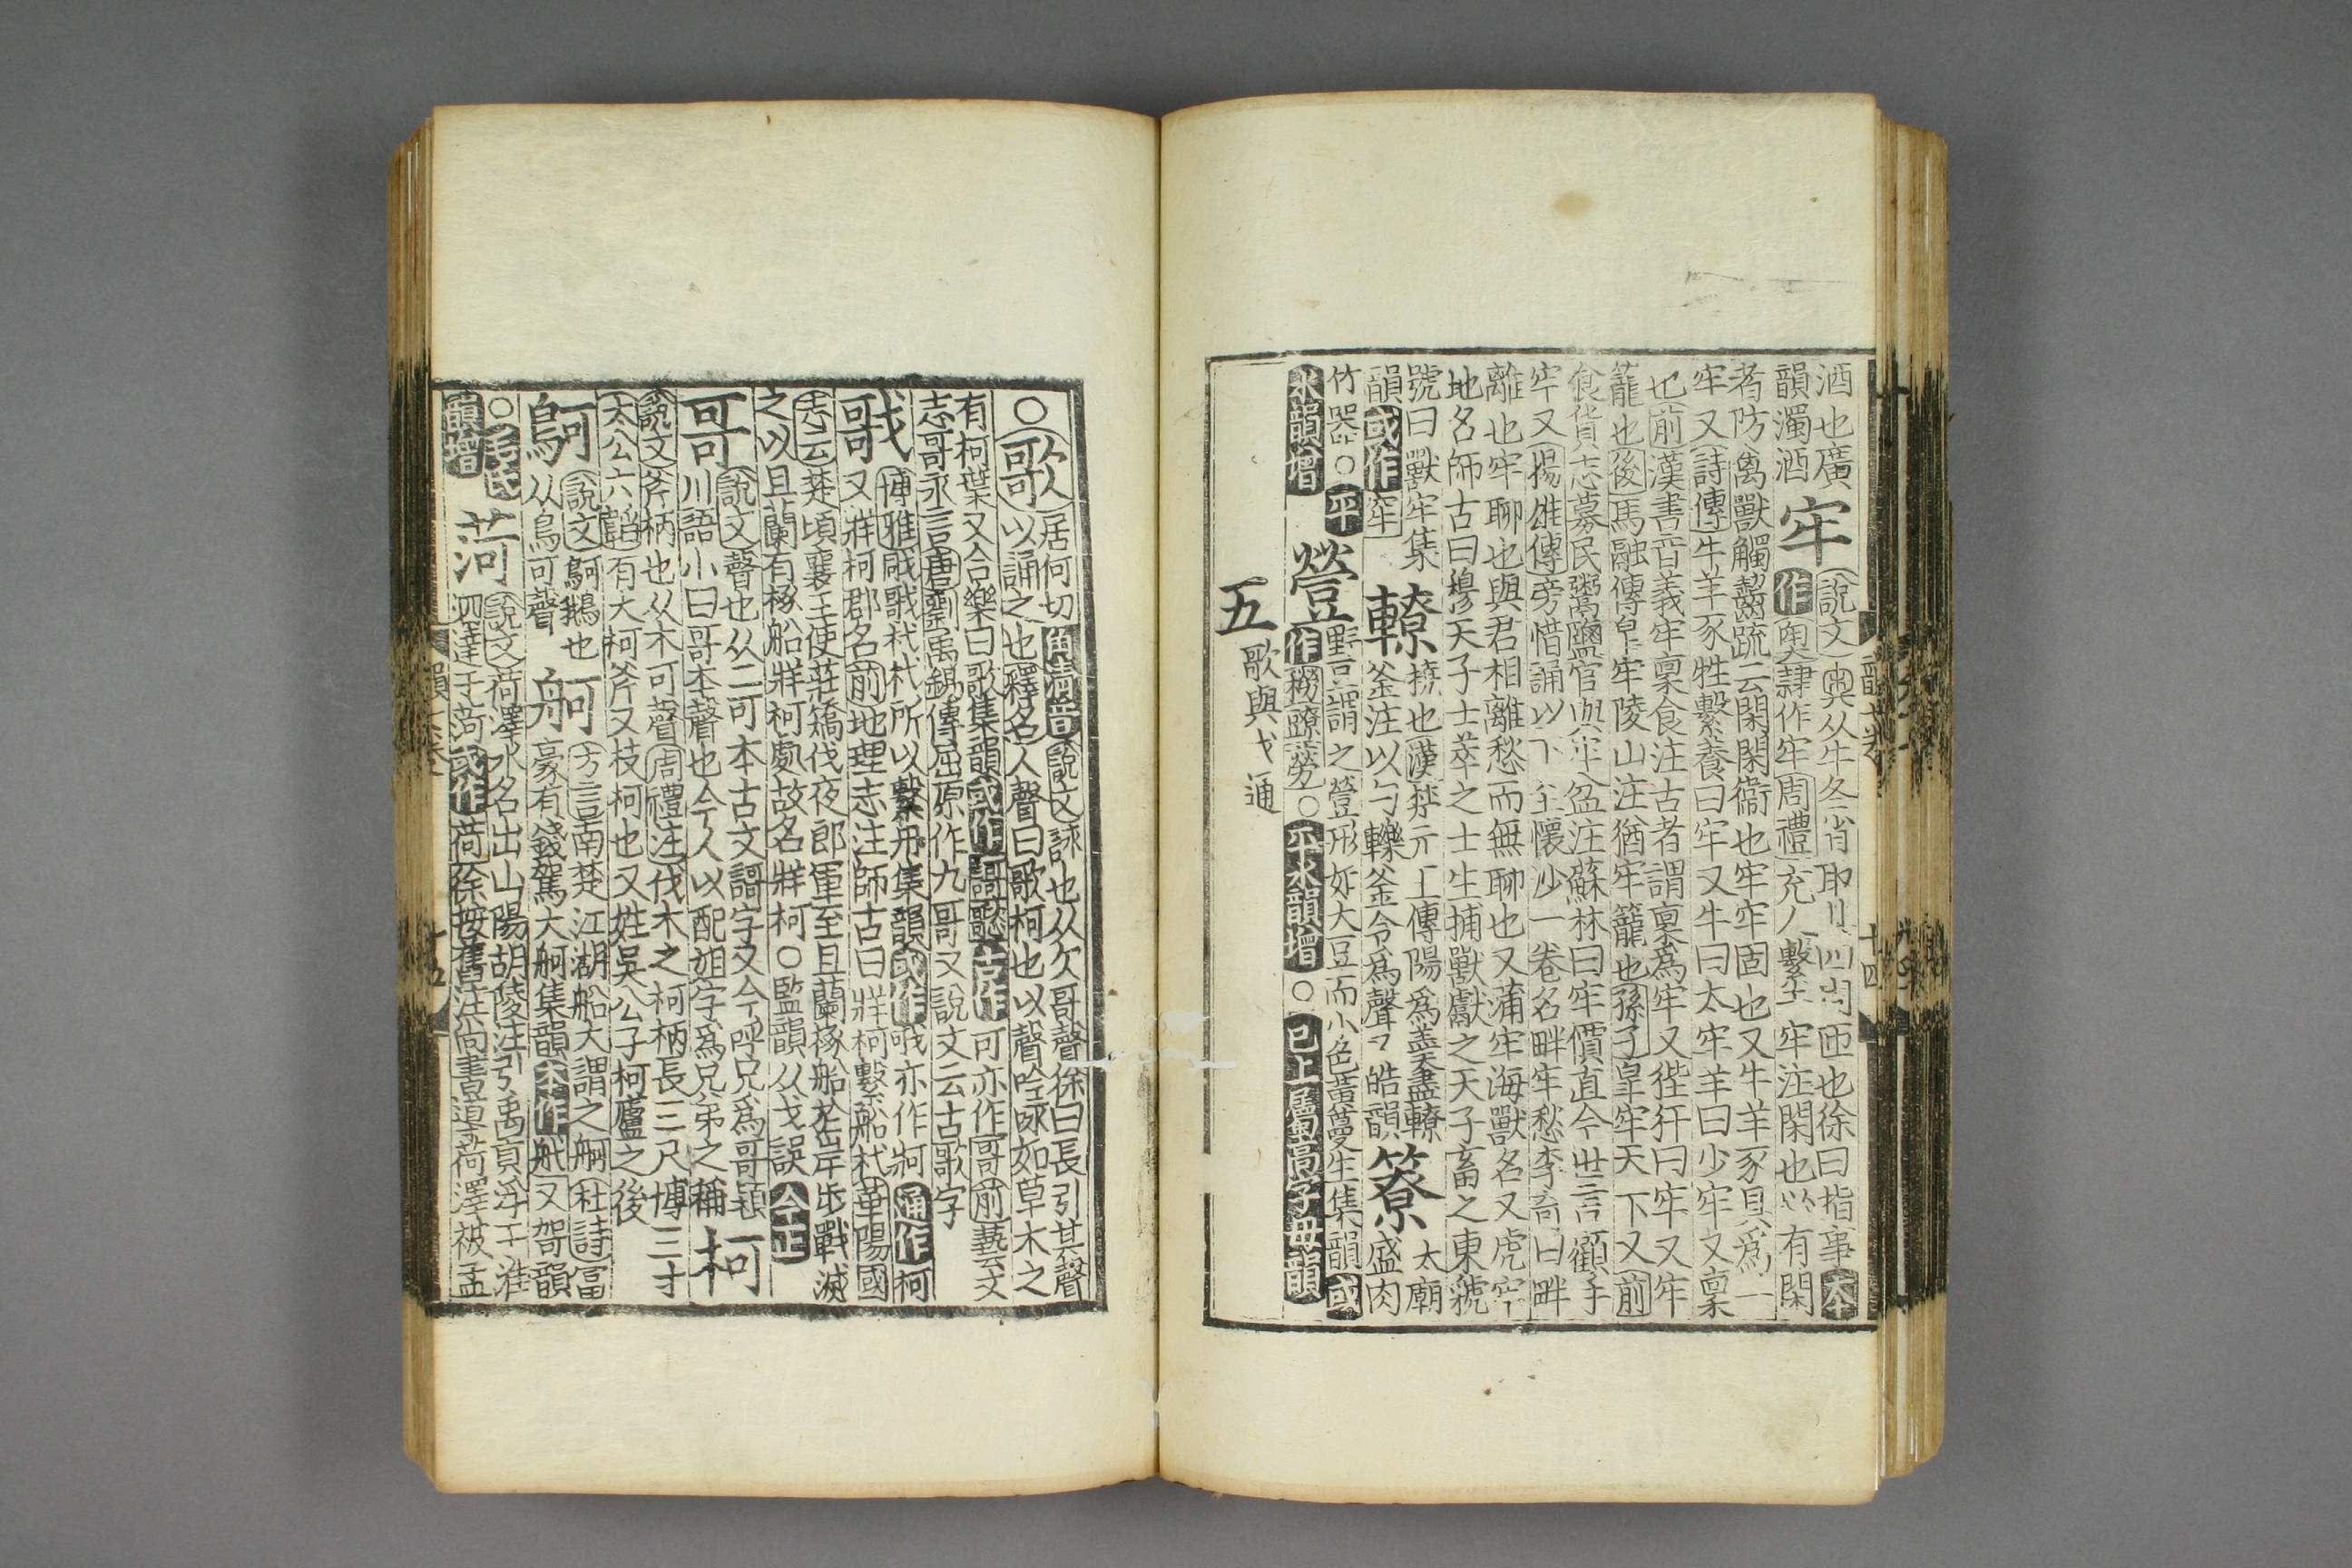 酒也廣
韻濁酒
牢
說文𤘺从牛冬省取其四周匝也徐曰指事本
作𤘺隸作牢周禮充人繫于牢注閑也必有閑
者防禽獸觸齧疏云閑閑衞也牢牢固也又牛羊豕具爲一
牢又詩傳牛羊豕牲繫養曰牢又牛曰太牢羊曰少牢又稟
也前漢書音義牢稟食注古者謂稟爲牢又狴犴曰牢又牢
籠也後馬融傳皐牢陵山注猶牢籠也孫子皐牢天下又前
食貨志募民鬻鹽官與牢盆注蘇林曰牢價直今世言顧手
牢又揚雄傳旁惜誦以下至懷沙一卷名畔牢愁李奇曰畔
離也牢聊也與君相離愁而無聊也又蒲牢海獸名又虎牢
地名師古曰穆天子士萃之士生捕獸獻之天子畜之東虢
號曰獸牢集
韻或作窂
轑
撓也漢楚元王傳陽爲羹盡轑
釜注以勺轢釜令爲聲又皓韻
簝
太廟
盛肉
竹器○平
水韻增
䝁
野豆謂之䝁形如大豆而小色黃蔓生集韻或
作𧯡○平水韻增○已上屬高字母韻
五
歌與戈通
韻七卷
十四
○歌
居何切角清音說文詠也从欠哥聲徐曰長引其聲
以誦之也釋名人聲曰歌柯也以聲吟咏如草木之
有柯葉又合樂曰歌集韻或作謌歌古作可亦作哥前藝文
志哥永言唐劉禹錫傳屈原作九哥又說文云古歌字
戨
博雅戨戨杙杙所以繫舟集韻或作哦亦作牁通作柯
又牂柯郡名前地理志注師古曰牂柯繫船杙華陽國
志云楚頃襄王使莊蹻伐夜郎軍至且蘭椓船於岸步戰滅
之以且蘭有椓船牂柯處故名牂柯○監韻从戈誤今正
哥
說文聲也从二可本古文謌字又今呼兄爲哥潁
川語小曰哥本聲也今人以配姐字爲兄弟之稱
柯
說文斧柄也从木可聲周禮注伐木之柯柄長三尺博三寸
太公六韜有大柯斧又枝柯也又姓吳公子柯廬之後
鴚
說文鴚鵝也
从鳥可聲
舸
方言南楚江湖船大謂之舸杜詩富
豪有錢駕大舸集韻本作𦨖又哿韻
○毛氏
韻增
菏
說文菏澤水名出山陽胡陵注引禹貢浮于淮
泗達于菏或作荷徐按舊注尚書道荷澤被孟
韻七卷
十五